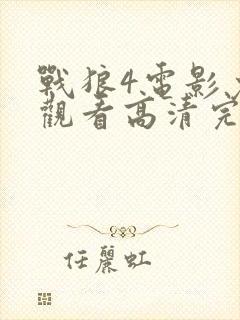 戰狼4電影
觀看高清完
任麗虹